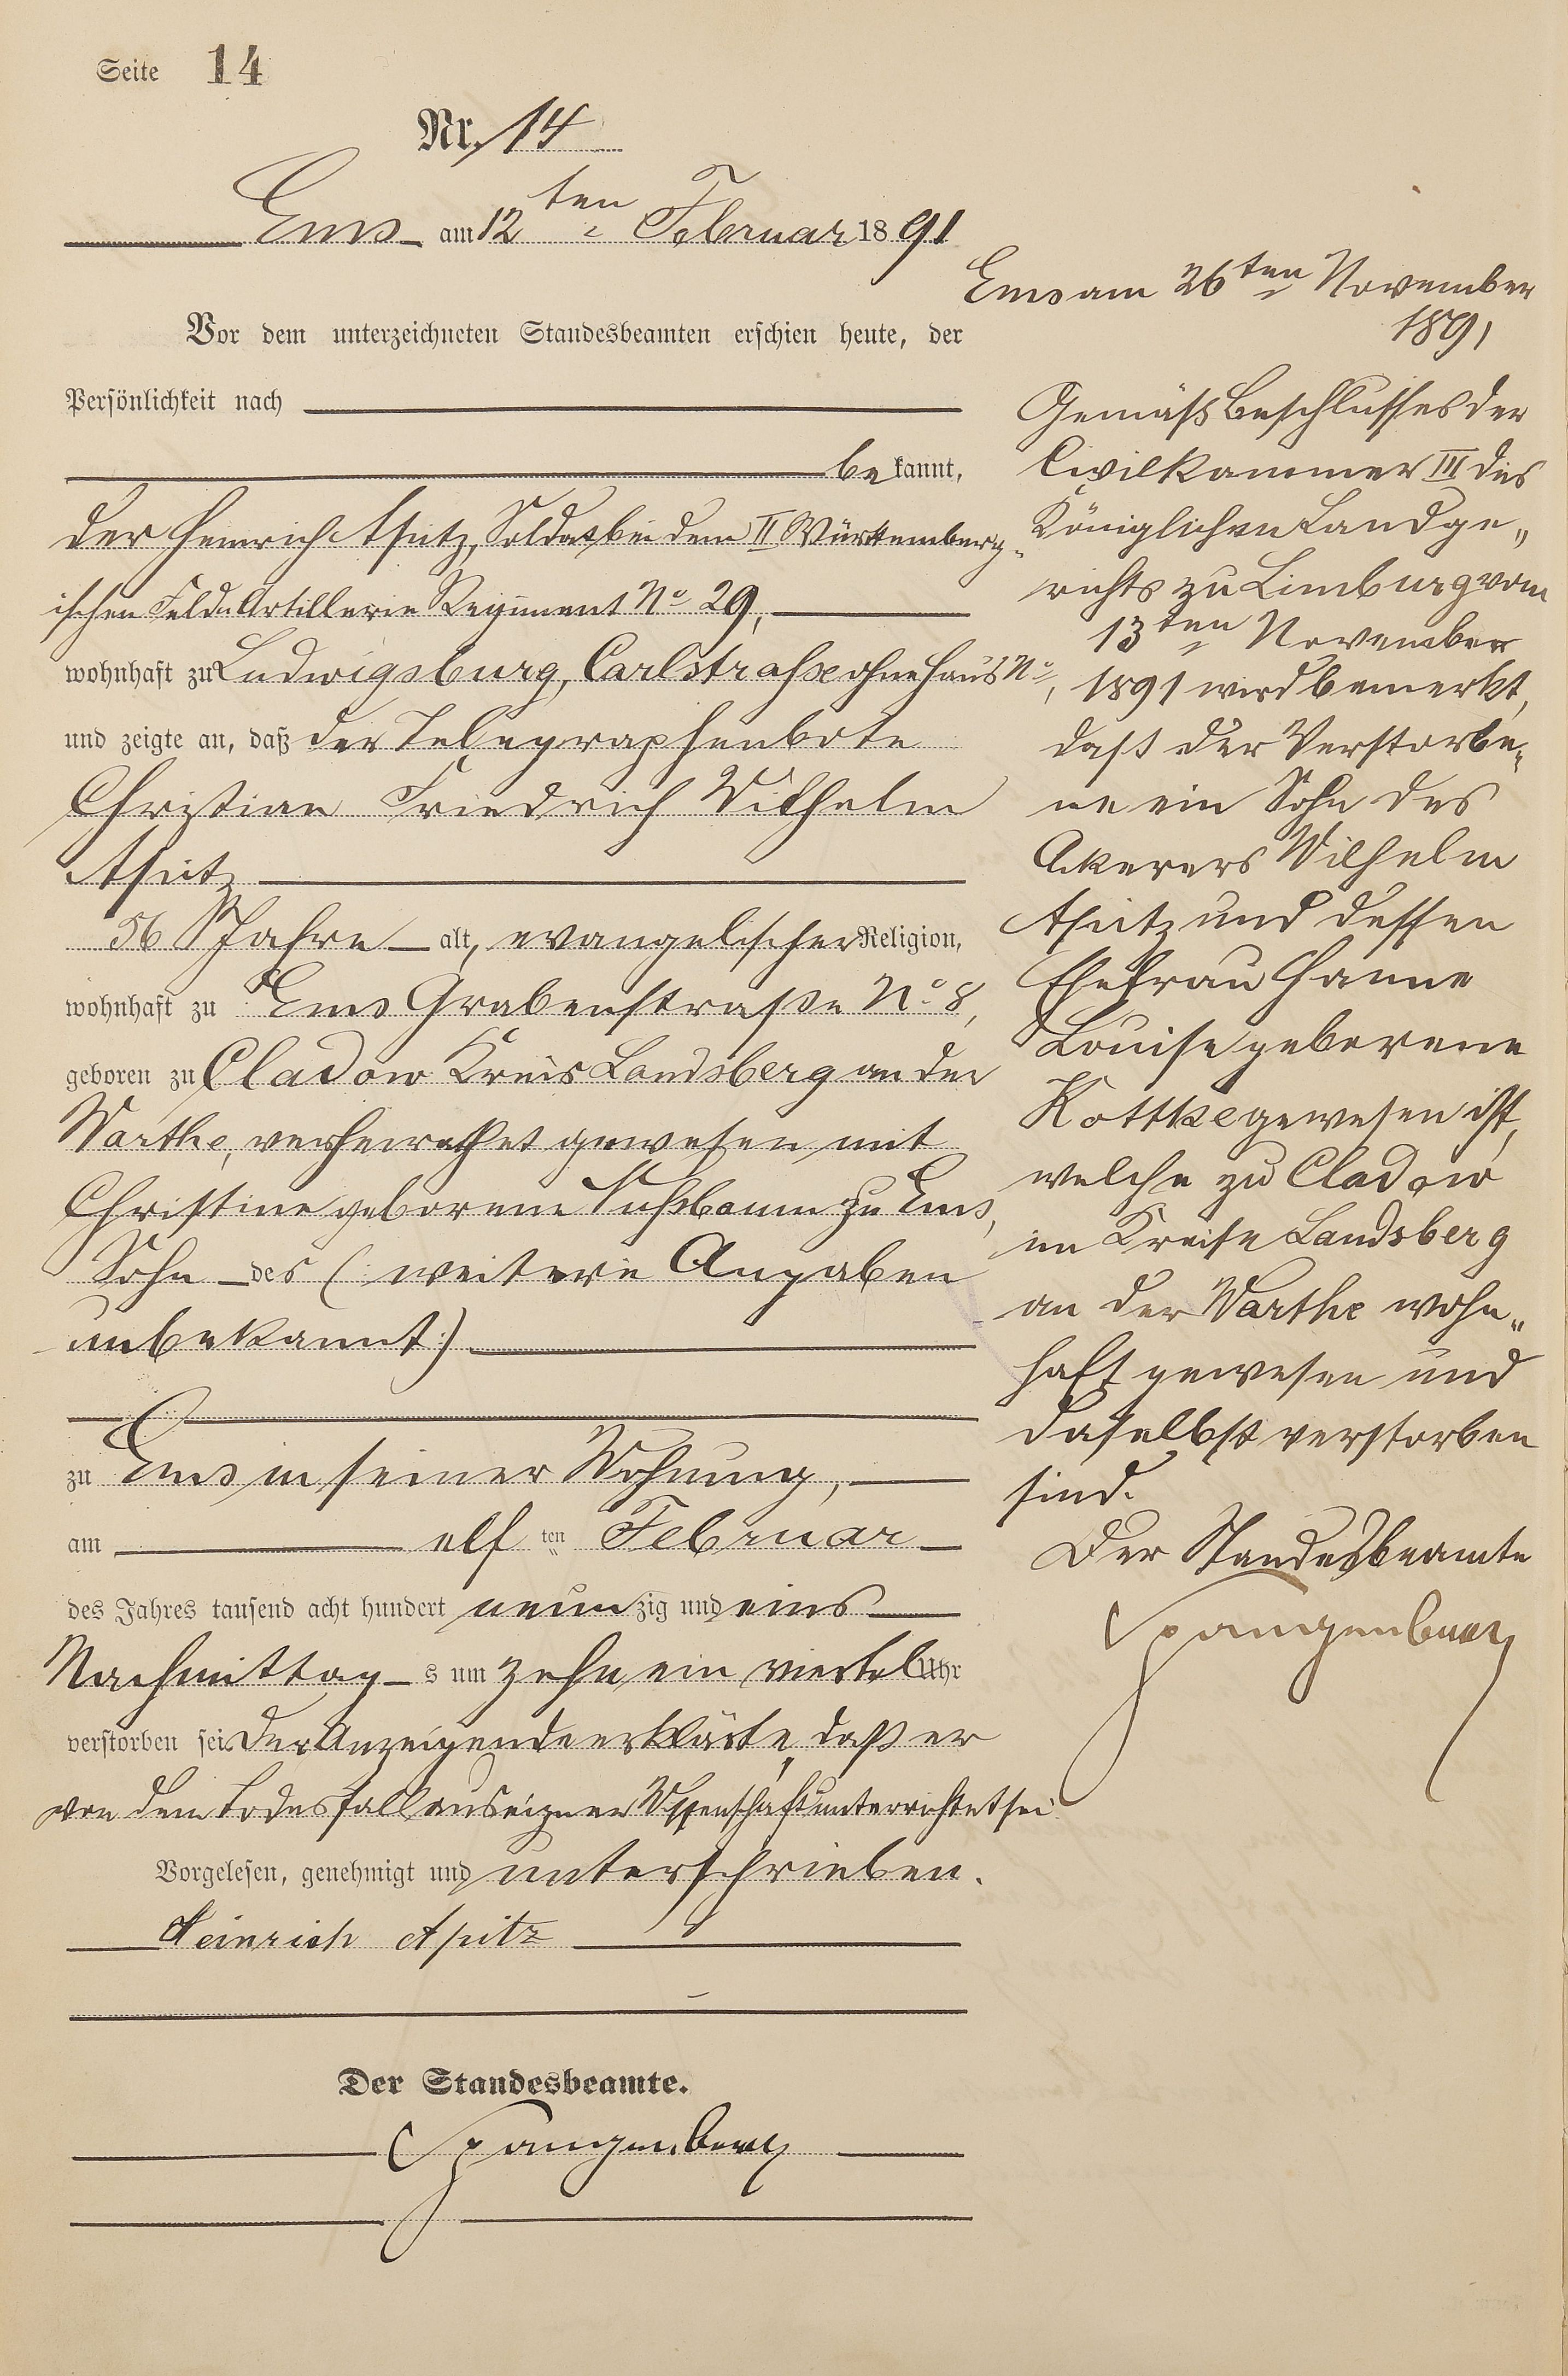 Seite 14
Nr. 14
Ems am 12ten Februar 1891
Vor dem unterzeichneten Standesbeamten erschien heute, der
Persönlichkeit nach
bekannt,
der Heinrich Apitz, Soldat bei dem II Württemberg-
ischen Feld-Artillerie Regiment No 29,
wohnhaft zu Ludwigsburg, Carlstraße ohne Haus No,
und zeigte an, daß der Telegraphenbote
Christian Friedrich Wilhelm
Apitz
56 Jahre alt, evangelischer Religion,
wohnhaft zu Ems Grabenstraße No 8,
geboren zu Cladow Kreis Landsberg an der
Warthe, verheirathet gewesen mit
Christine geborene Nußbaum zu Ems,
Sohn des (: weitere Angaben
unbekannt :)
zu Ems in seiner Wohnung,
am elften Februar
des Jahres tausend acht hundert neunzig und eins
Nachmittags um zehn ein viertel Uhr
verstorben sei. Der Anzeigende erklärte, daß er
von dem Todesfall aus eigner Wissenschaft unterrichtet sei.
Vorgelesen, genehmigt und unterschrieben.
Heinrich Apitz
Der Standesbeamte.
Spangenberg
Ems am 26ten November
1891
Gemäß Beschlusses der
Civilkammer III des
Königlichen Landge„
richts zu Limburg vom
13ten November
1891 wird bemerkt,
daß der Verstorbe„
ne ein Sohn des
Akerers Wilhelm
Apitz und dessen
Ehefrau Hanne
Louise geborene
Kottke gewesen ist,
welche zu Cladow
im Kreise Landsberg
an der Warthe wohn„
haft gewesen und
daselbst verstorben
sind.
Der Standesbeamte
Spangenberg